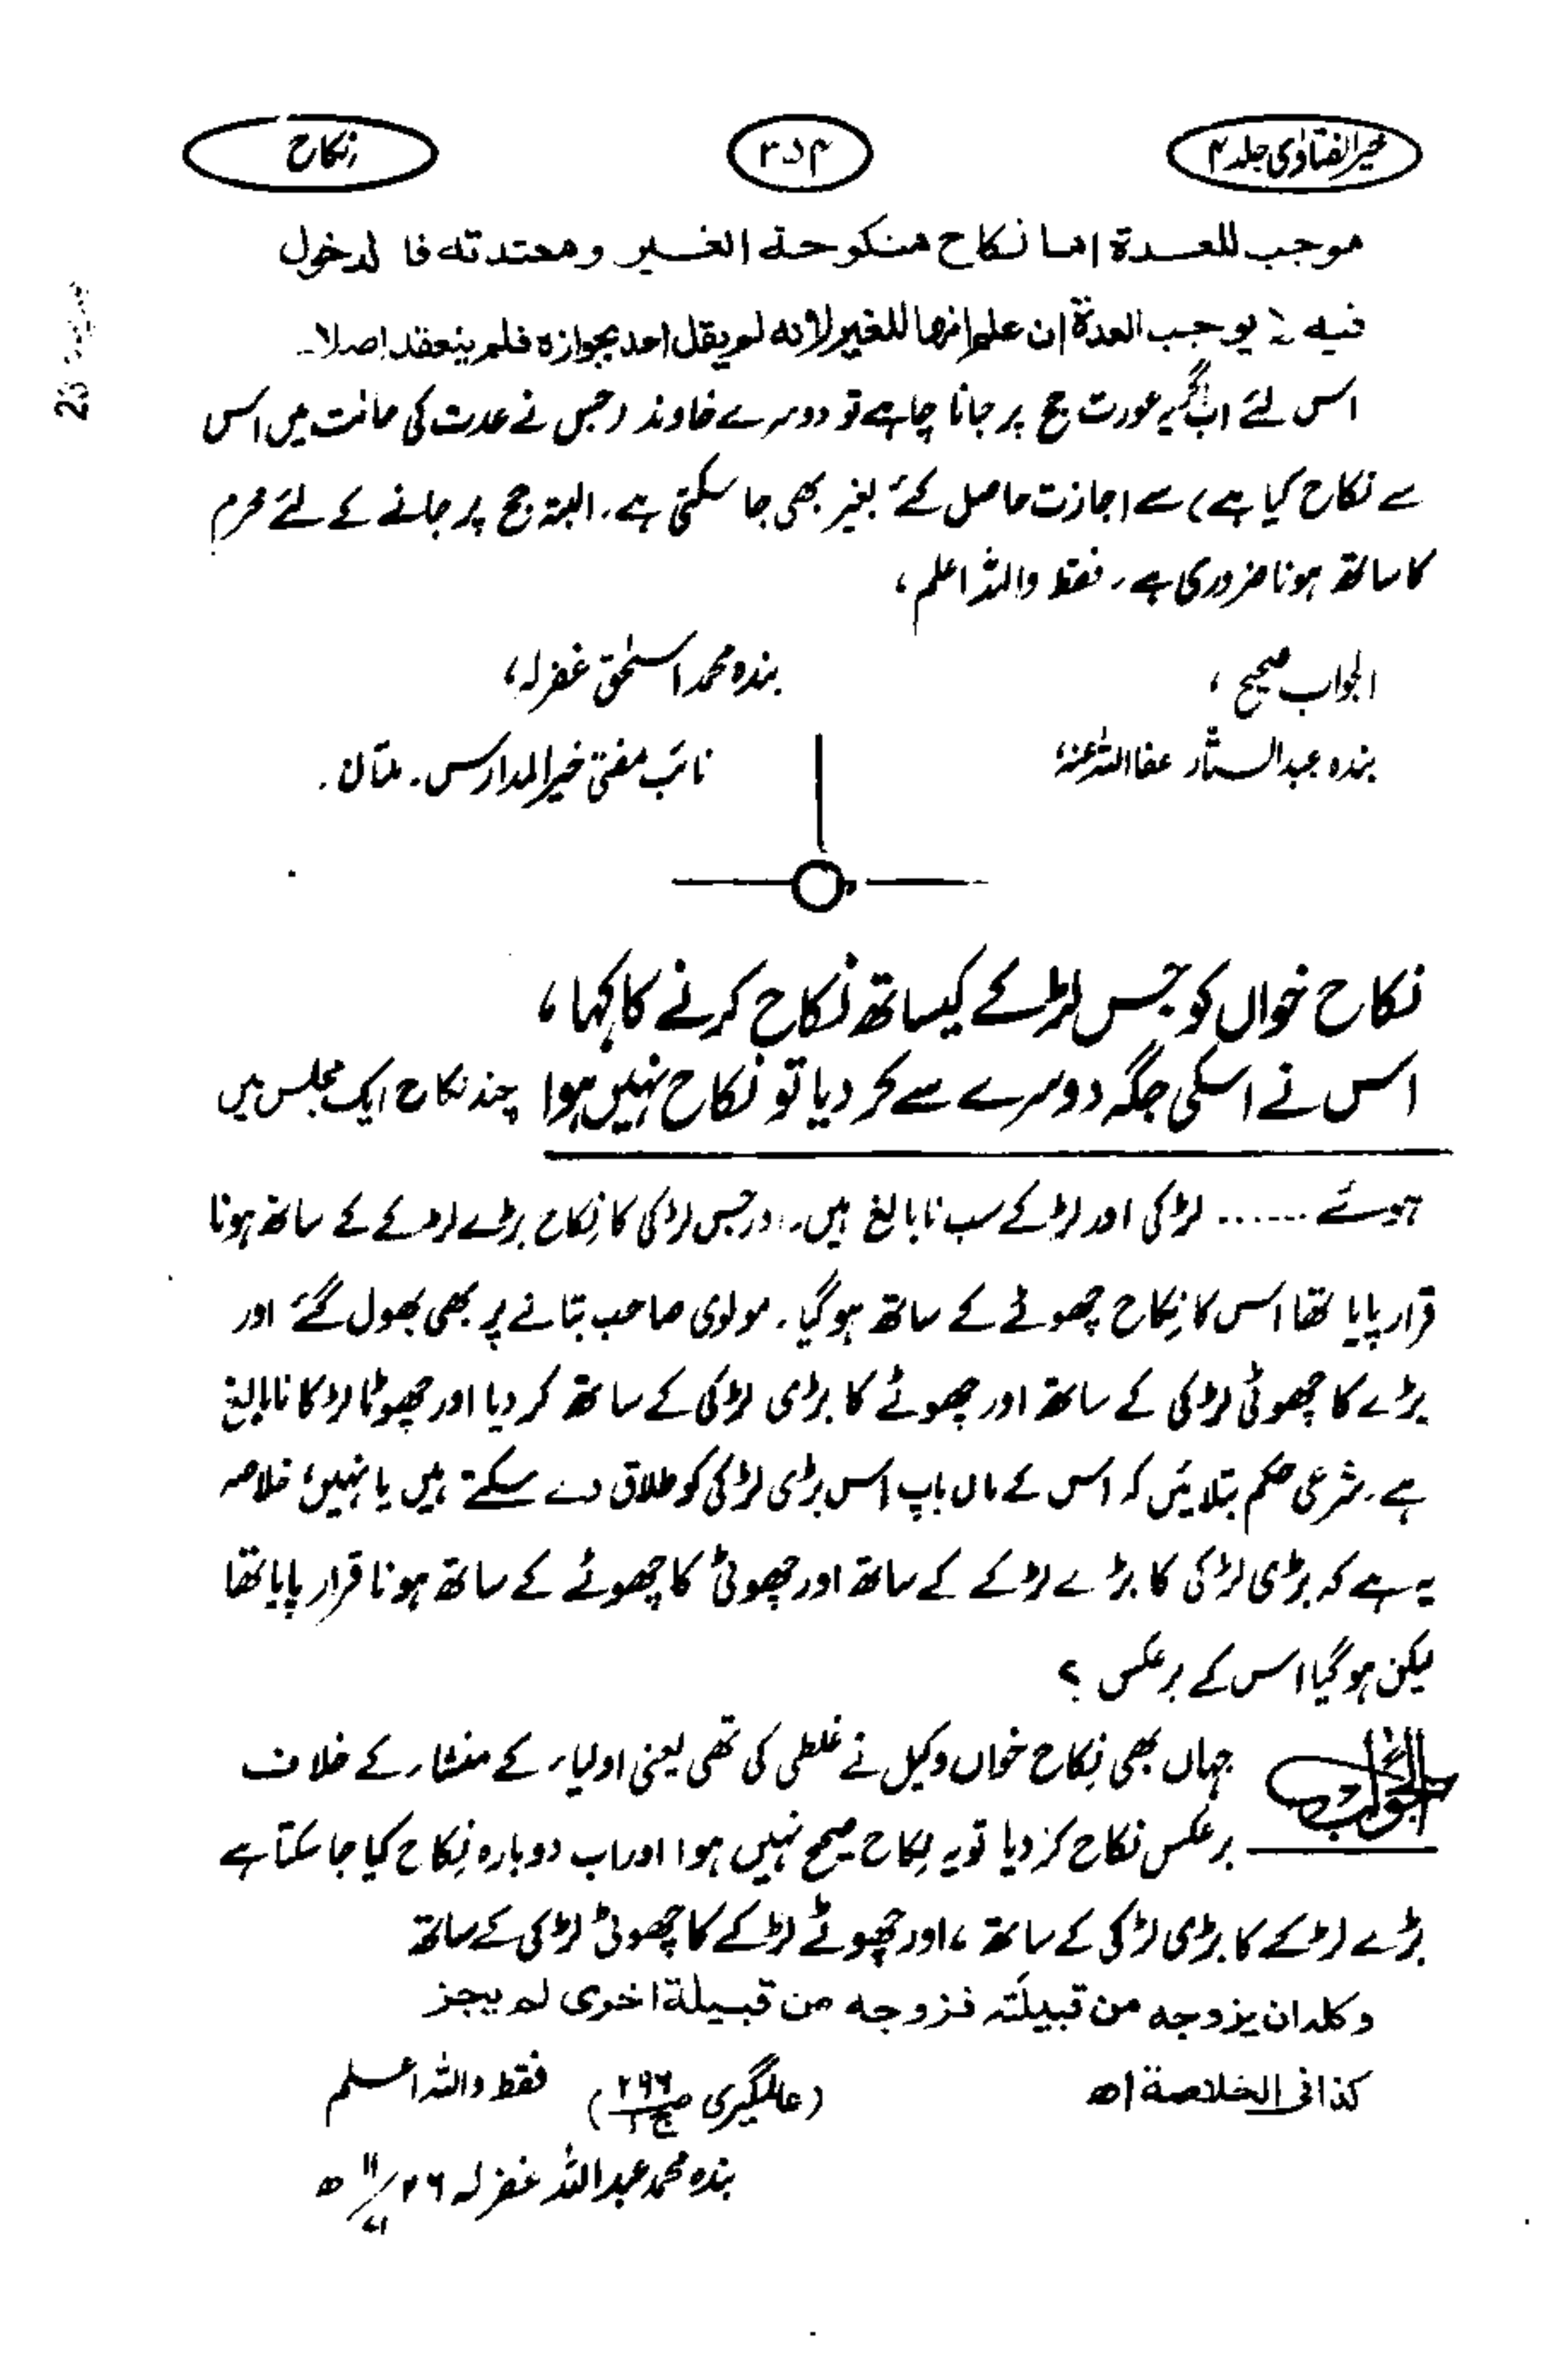 خیر الفتاوٰی جلد ۴
۳۵۴
نکاح
موجب للعدۃ اما نکاح منکوحۃ الغیر و معتدتہ فا لدخول
فیہ لا یوجب العدۃ ان علم انہا للغیر لانہ لم یقل احد بجوازہ فلم ینعقد اصلا۔
اس لئے اب اگر یہ عورت حج پر جانا چاہے تو دوسرے خاوند (جس نے عدت کی حالت میں اس
سے نکاح کیا ہے) سے اجازت حاصل کئے بغیر بھی جا سکتی ہے۔ البتہ حج پر جانے کے لئے محرم
کا ساتھ ہونا ضروری ہے۔ فقط واللہ اعلم،
الجواب صحیح،
بندہ محمد اسحٰق غفرلہ،
بندہ عبد الستار عفا اللہ عنہ،
نائب مفتی خیر المدارس۔ ملتان۔
نکاح خواں کو جس لڑکے کیساتھ نکاح کرنے کا کہا،
اس نے اسکی جگہ دوسرے سے کر دیا تو نکاح نہیں ہوا چند نکاح ایک مجلس میں
ہوئے ...... لڑکی اور لڑکے سب نابالغ ہیں۔ اور جس لڑکی کا نکاح بڑے لڑکے کے ساتھ ہونا
قرار پایا تھا اس کا نکاح چھوٹے کے ساتھ ہو گیا۔ مولوی صاحب بتانے پر بھی بھول گئے اور
بڑے کا چھوٹی لڑکی کے ساتھ اور چھوٹے کا بڑی لڑکی کے ساتھ کر دیا اور چھوٹا لڑکا نابالغ
ہے۔ شرعی حکم بتلائیں کہ اس کے ماں باپ اس بڑی لڑکی کو طلاق دے سکتے ہیں یا نہیں؛ خلاصہ
یہ ہے کہ بڑی لڑکی کا بڑے لڑکے کے ساتھ اور چھوٹی کا چھوٹے کے ساتھ ہونا قرار پایا تھا
لیکن ہو گیا اس کے برعکس ؟
الجواب جہاں بھی نکاح خواں وکیل نے غلطی کی تھی یعنی اولیاء کے منشاء کے خلاف
برعکس نکاح کر دیا تو یہ نکاح صحیح نہیں ہوا اور اب دوبارہ نکاح کیا جا سکتا ہے
بڑے لڑکے کا بڑی لڑکی کے ساتھ، اور چھوٹے لڑکے کا چھوٹی لڑکی کے ساتھ
وکلہ ان یزوجہ من قبیلتہ فزوجہ من قبیلۃ اخری لم یجز
کذا فی الخلاصۃ اھ (عالمگیری ص۲۹۶ ج۱) فقط واللہ اعلم
بندہ محمد عبد اللہ غفرلہ ۲۶/۱۱ ھ